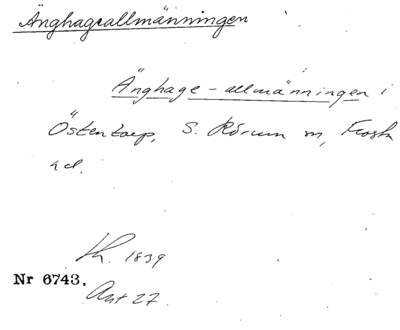 Änghageallmänningen
Änghage-allmänningen i
Östentorp, S. Rörum m, Frosta
hd.
Kh. 1839
Nr 6743.
Ant 27.